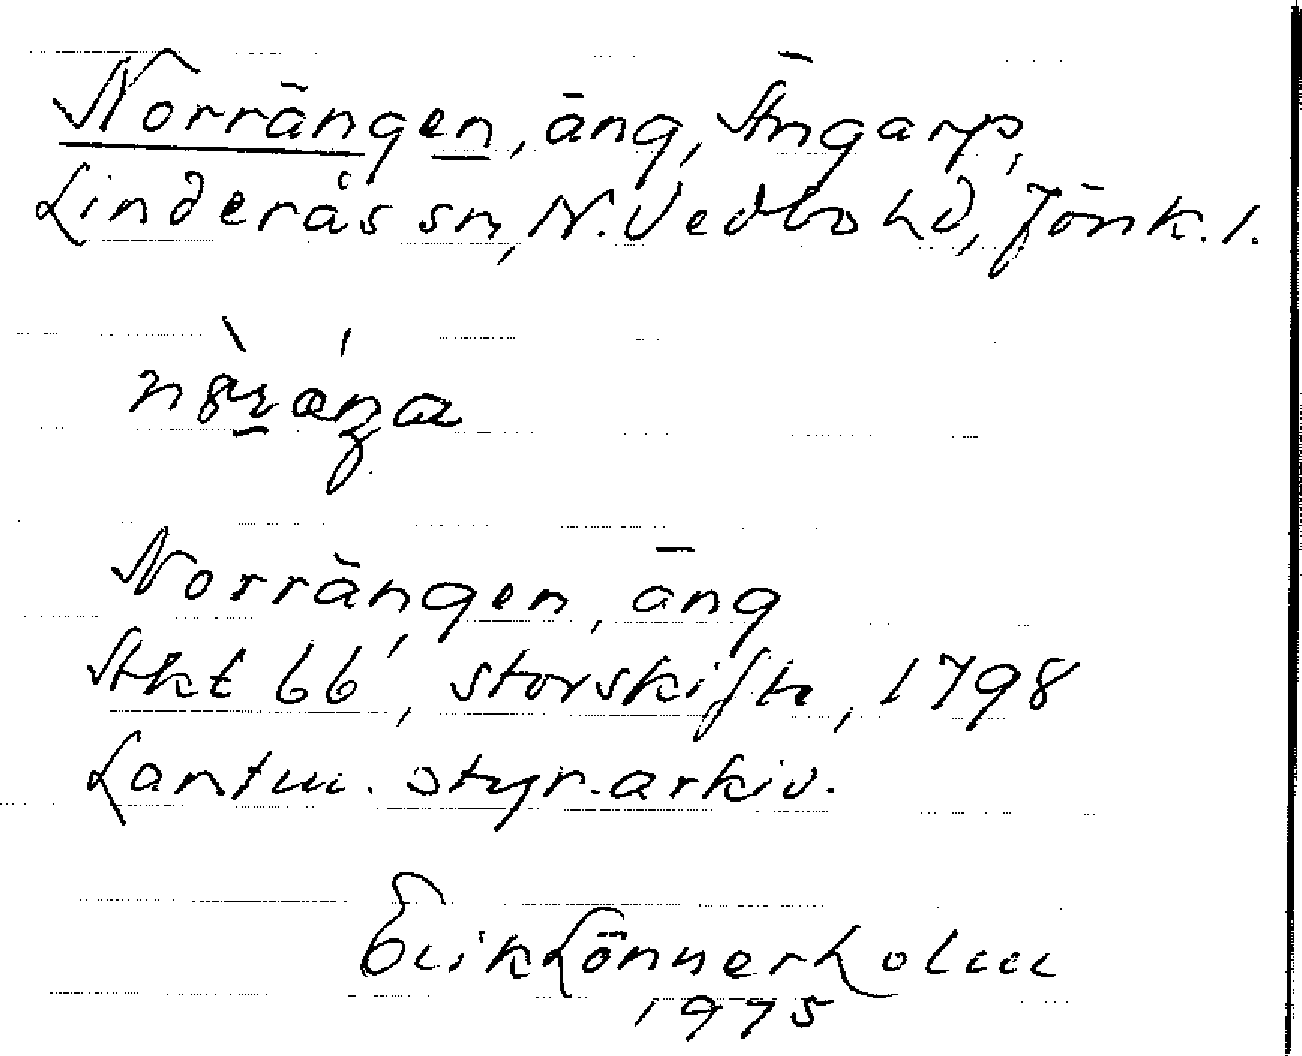 Norrängen, äng, Stngarp,
Linderås sn, N. Vedbo hd, Jönk. l.
Norrängen, äng
Akt 66, storskifte, 1798
Lantm. styr. arkiv.
Erik Lönnerholm
1975